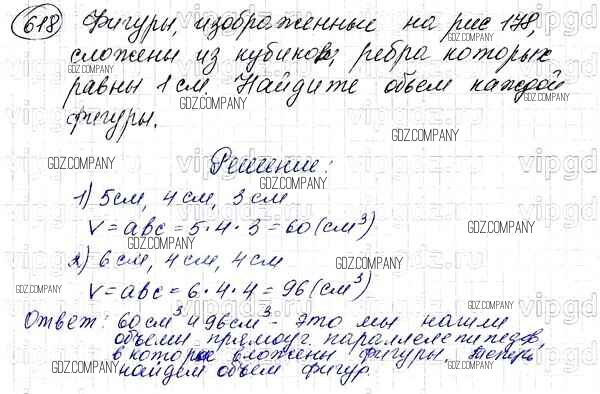 618 Фигуры, изображенные на рис 178,
сложены из кубиков, ребра которых
равны 1 см. Найдите объем каждой
фигуры.
Решение:
1) 5см, 4 см, 3 см
V = abc = 5·4·3 = 60 (см³)
2) 6 см, 4 см, 4 см
V = abc = 6·4·4 = 96 (см³)
Ответ: 60 см³ и 96 см³ - это мы нашли
объемы прямоуг. параллелепипедов,
в которые вложены фигуры. Теперь
найдем объем фигур.